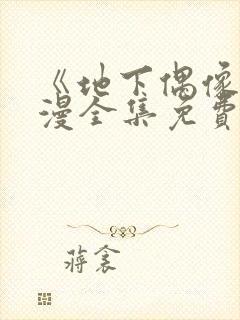 《地下偶像
漫全集免費
蔣衾